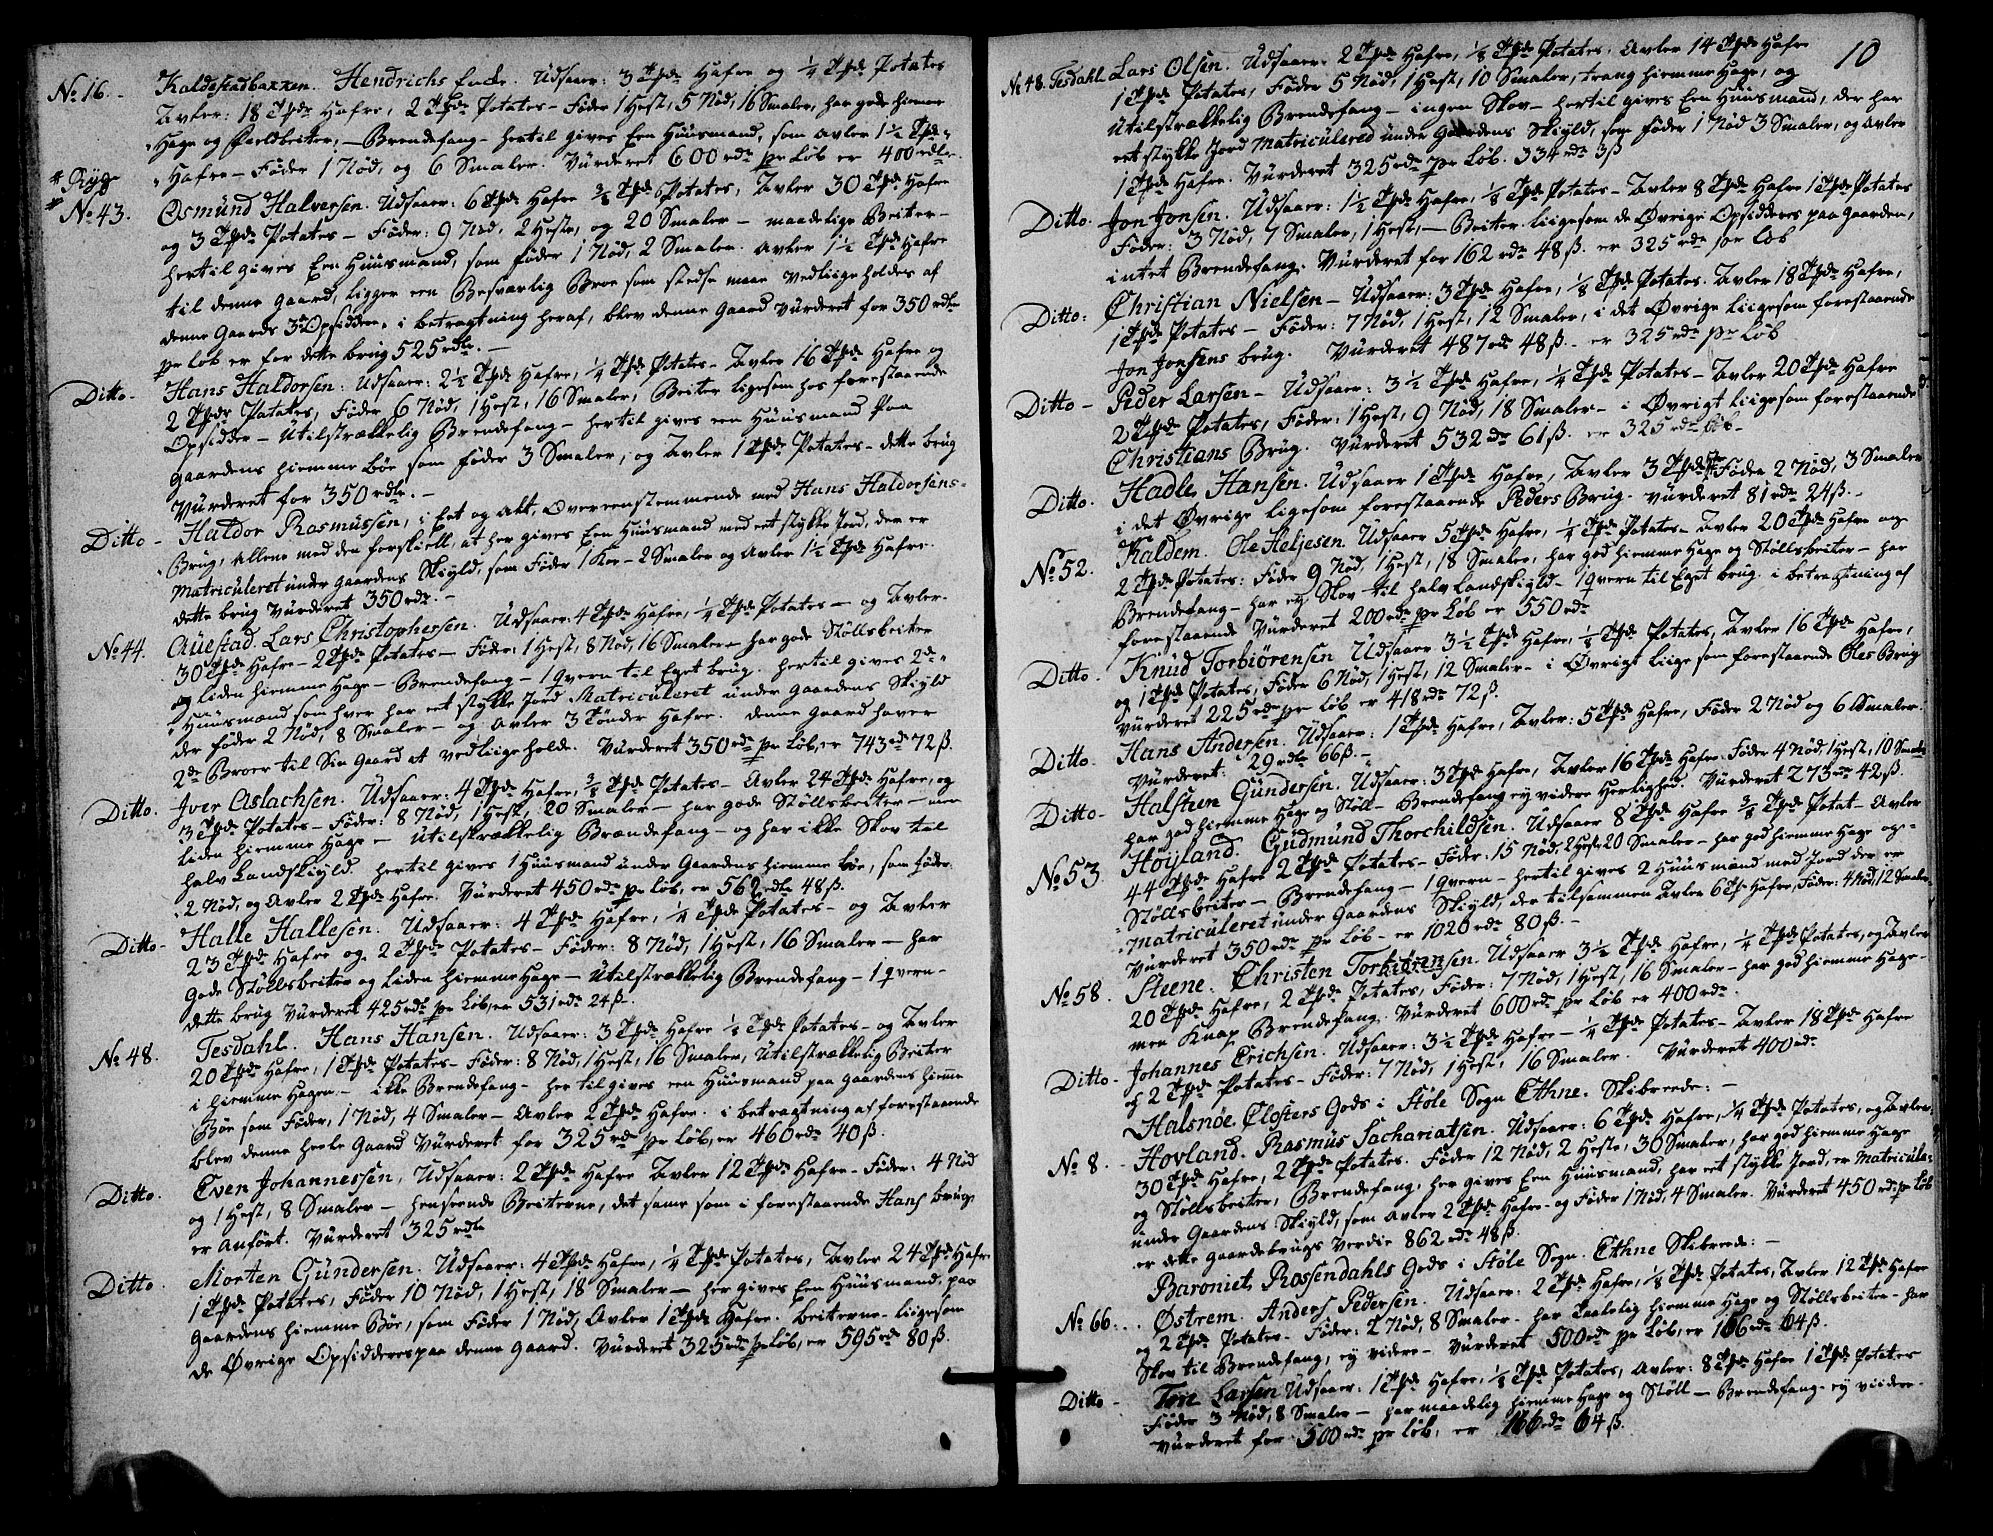 No 16. Kaldestadbakken. Hendrichs Enche. Udsaaer: 3 Tpde Hafre og 1/4 Tpde Potates
Avler: 18 Tpde Hafre, 2 Tpde Potates - Føder 1 Hest, 5 Nød, 16 Smaler, har gode hieme
Hage og beiter, - Brendefang - hertil gives Een Huusmand, som Avler 1 1/2 Tpde
Hafre - Føder 1 Nød, og 6 Smaler. Vurderet 600 rdr pr Løb er 400 rdlr.
Ryg
No 43. Osmund Halversen. Udsaaer: 6 Tpde Hafre 3/8 Tpde Potates, Avler 30 Tpde Hafre
og 3 Tpde Potates - Føder: 9 Nød, 2 Heste, og 20 Smaler - maadelige Beiter -
hertil gives Een Huusmand, som føder 1 Nød, 2 Smaler. Avler 1 1/2 Tpd Hafre
til denne gaard, ligger een Besværlig Broe som stedse maa vedliigeholdes af
denne Gaards 3de Opsiddere, i betragtning heraf, blev denne Gaard vurderet for 350 rdlr
pr Løb er for dette brug 525 rdlr. -
Ditto - Hans Haldorsen: Udsaaer: 2 1/2 Tpde Hafre, 1/4 Tpde Potates - Avler 16 Tpde Hafre og
2 Tpdr Potates, Føder 6 Nød, 1 Hest, 16 Smaler, Beiter ligesom hos forestaaende
Opsidder - Utilstrækkelig Brendefang - hertil gives een Huusmand paa
Gaardens hiemme Bøe som føder 3 Smaler, og Avler 1 Tpde Potates - dette brug
Vurderet for 350 rdlr. -
Ditto - Haldor Rasmussen, i Eet og Alt, Overeenstemmende med Hans Haldorsens
Brug, Allene med den forskiell, at her gives Een Huusmand med eet stykke Jord, der er
Matriculeret under gaardens Skyld, som Føder 1 Koe - 2 Smaler og Avler 1 1/2 Tpde Hafre.
dette brug Vurderet 350 rdr. -
No 44. Auestad. Lars Christophersen. Udsaaer: 4 Tpde Hafre, 1/4 Tpde Potates - og Avler.
30 Tpde Hafre - 2 Tpde Potates - Føder: 1 Hest, 8 Nød, 16 Smaler - har gode Støllsbeiter
og liden hiemme Hage - Brendefang - 1 qvern til Eget brug. hertil gives 2de
Huusmænd som hver har eet stykke Jord Matriculeret under Gaardens Skyld
der føder 2 Nød, 8 Smaler - og Avler 3 Tønder Hafre. denne gaard haver
2de Broer til Sin Gaard at vedliigeholde. Vurderet 350 rdr pr Løb, er 743 rdr 72 ß.
Ditto. Iver Aslachsen. Udsaaer: 4 Tpde Hafre, 3/8 Tpde Potates - Avler 24 Tpde Hafre, og
3 Tpde Potates - Føder: 8 Nød, 1 Hest, 20 Smaler - har gode Støllsbeiter - men
liden hiemme Hage - Utilstrækkelig Brændefang - og har ikke Skov til
halv Landskyld. hertil gives 1 Huusmand under Gaardens hiemme Bøe, som føder
2 Nød, og Avler 2 Tpde Hafre. Vurderet 450 rdr pr Løb, er 562 rdlr 48 ß.
Ditto - Halle Hallesen. Udsaaer: 4 Tpde Hafre, 1/4 Tpde Potates - og Avler
23 Tpde Hafre og 2 Tpde Potates - Føder: 8 Nød, 1 Hest, 16 Smaler - har
Gode Støllsbeiter og Liden hiemme Hage - Utilstrækkelig Brendefang - 1 qvern -
dette brug Vurderet 425 rdl pr Løb, er 531 rdr 24 ß.
No 48. Tesdahl. Hans Hansen. Udsaaer: 3 Tpde Hafre 1/8 Tpde Potates - og Avler
20 Tpde Hafre, 1 Tpde Potates - Føder: 8 Nød, 1 Hest, 16 Smaler, Utilstrækkelig Beiter
i hiemme Hagen - ikke Brendefang - her til gives een Huusmand paa gaardens hieme
Bøe som Føder, 1 Nød, 4 Smaler - Avler 2 Tpde Hafre. i betragtning af forestaaende
blev denne heele Gaard Vurderet for 325 rdr pr Løb, er 460 rdr 40 ß.
Ditto. Even Johannessen, Udsaaer: 2 Tpde Hafre Avler 12 Tpde Hafre - Føder: 4 Nød
og 1 Hest, 8 Smaler - henseende Beiterne, det same som i forestaaende Hans brug
er Anført. Vurderet 325 rdlr
Ditto. Morten Gundersen. Udsaaer: 4 Tpde Hafre, 1/4 Tpde Potates, Avler 24 Tpde Hafre
1 Tpde Potates, Føder 10 Nød, 1 Hest, 18 Smaler - her gives Een Huusmand, paa
Gaardens hiemme Bøe, som Føder 1 Nød, Avler 1 Tpde Hafre. beiterne - liigesom
de Øvrige Opsidderes paa denne gaard. Vurderet 325 rdr pr Løb, er 595 rdr 80 ß.
10
No 48. Tesdahl Lars Olsen. Udsaaer: 2 Tpde Hafre, 1/8 Tpde Potates. Avler 14 Tpde Hafre
1 Tpde Potates, Føder 5 Nød, 1 Hest, 10 Smaler, trang hiemme Hage, og
Utilstrækkelig Brendefang - ingen Skov - hertil gives Een Huusmand, der har
eet stykke Jord Matriculered under Gaardens Skyld, som føder 1 Nød 3 Smaler, og Avler
1 Tpde Hafre. Vurderet 325 rdr pr Løb. 334 rdr 3 ß
Ditto. Jon Jonsen. Udsaaer: 1 1/2 Tpde Hafre, 1/8 Tpde Potates - Avler 8 Tpde Hafre 1 Tpde Potates
Føder: 3 Nød, 7 Smaler, 1 Hest, - Beiter liigesom de Øvrige Opsidderes paa Gaarden,
intet Brendefang. Vurderet for 162 rdr 48 ß. er 325 rdr pr Løb
Ditto: Christian Nielsen - Udsaaer: 3 Tpde Hafre, 1/8 Tpde Potates. Avler 18 Tpde Hafre,
1 Tpde Potates - Føder: 7 Nød, 1 Hest, 12 Smaler, i det Øvrige liigesom forestaaende
Jon Jonsens brug. Vurderet 487 rdr 48 ß. - er 325 rdr pr Løb
Ditto - Peder Larsen - Udsaaer: 3 1/2 Tpde Hafre, 1/4 Tpde Potates - Avler 20 Tpde Hafre
2 Tpde Potates, Føder: 1 Hest, 9 Nød, 18 Smaler - i Øvrigt liigesom forestaaende
Christians Brug. Vurderet 532 rdr 61 ß. er 325 rdr Løb -
Ditto. Hadle Hansen. Udsaaer 1 Tpde Hafre, Avler 3 Tpde Føder 2 Nød, 3 Smaler
i det Øvrige ligesom forestaaende Peders Brug. vurderet 81 rdr 24 ß. -
No 52. Kaldem. Ole Heljesen. Udsaaer 5 Tpde Hafre, 1/4 Tpde Potates - Avler 20 Tpde Hafre og
2 Tpde Potates: Føder 9 Nød, 1 Hest, 18 Smaler, har god hiemme Hage og Støllsbeiter - har
Brendefang - har ey Skov til halv Landskyld - 1 qvern til Eget brug. i betragtning af
forestaaende Vurderet 200 rdr pr Løb er 550 rdr
Ditto. Knud Torbiørensen Udsaaer 3 1/2 Tpde Hafre, 1/8 Tpde Potates, Avler 16 Tpde Hafre,
og 1 Tpde Potates, Føder 6 Nød, 1 Hest, 12 Smaler - i Øvrigt liige som forestaaende Oles Brug
vurderet 225 rdr pr Løb er 418 rdr 72 ß.
Ditto. Hans Andersen. Udsaaer: 1 Tpde Hafre, Avler: 5 Tpde Hafre, Føder 2 Nød og 6 Smaler.
Vurderet: 29 rdlr 66 ß. -
Ditto - Halsteen Gundersen. Udsaaer: 3 Tpde Hafre, Avler 16 Tpde Hafre Føder 4 Nød, 1 Hest, 10 Smaler
har god hiemme Hage og Støll - Brendefang ey videre Herlighed. Vurderet 273 rdr 42 ß.
No 53 Høyland. Gudmund Thorchildsen. Udsaaer 8 Tpde Hafre 3/8 Tpde Potat - Avler
44 Tpde Hafre 2 Tpde Potates - Føder: 15 Nød, 2 Heste 20 Smaler - har god hiemme Hage og
Støllsbeiter - Brendefang - 1 qvern - hertil gives 2 Huusmænd med Jord der er
Matriculeret under Gaardens Skyld, der tilsammen Avler 6 Tp Hafre, Føder: 4 Nød, 12 Smaler
Vurderet 350 rdr pr Løb - er 1020 rdr 80 ß. -
No 58. Steene. Christen Torbiørensen. Udsaaer 3 1/2 Tpde Hafre, 1/4 Tpde Potates, og Avler
20 Tpde Hafre, 2 Tpde Potates, Føder: 7 Nød, 1 Hest, 16 Smaler - har god hiemme Hage -
men Knap Brendefang. Vurderet 600 rdr pr Løb er 400 rdr.
Ditto - Johannes Erichsen. Udsaaer: 3 1/2 Tpde Hafre - 1/4 Tpde Potates - Avler 18 Tpde Hafre
og 2 Tpde Potates - Føder: 7 Nød, 1 Hest, 16 Smaler. Vurderet 400 rdr
Halsnøe Closters Gods i Støle Sogn Ethne. Skibreede: -
No 8. Hovland. Rasmus Sachariatsen. Udsaaer: 6 Tpde Hafre, 1/4 Tpde Potates, og Avler
30 Tpde Hafre, 2 Tpde Potates. Føder 12 Nød, 2 Heste, 30 Smaler, har god hiemme Hage
og Støllsbeiter, Brendefang, her gives Een Huusmand, har eet stykke Jord, er Matricule-
under Gaardens Skyld, som Avler 2 Tpde Hafre - og Føder 1 Nød, 4 Smaler. Vurderet 450 rdr pr Løb
er dette gaardebrugs Verdie 862 rdr 48 ß.
Baroniet Rossendahls Gods i Støle Sogn. Ethne Skibrede: -
No 66. Østrem. Anders Pedersen. Udsaaer: 2 Tpde Hafre, 1/8 Tpde Potates, Avler 12 Tpde Hafre
og 2 Tpde Potates - Føder: 2 Nød, 8 Smaler - har Taalelig hiemme Hage og Støllsbeiter - har
Skov til Brendefang, ey videre - Vurderet 500 rdr pr Løb, er 166 rdr 64 ß.
Ditto - Larsen Udsaaer: 1 Tpde Hafre, 1/8 Tpde Potates, Avler: 8 Tpde Hafre 1 Tpde Potates
Føder 3 Nød, 8 Smaler - har maadelig hiemme Hage og Støll - Brendefang ey viidere -
Vurderet for 500 rdr pr Løb, er 166 rdr 64 ß.